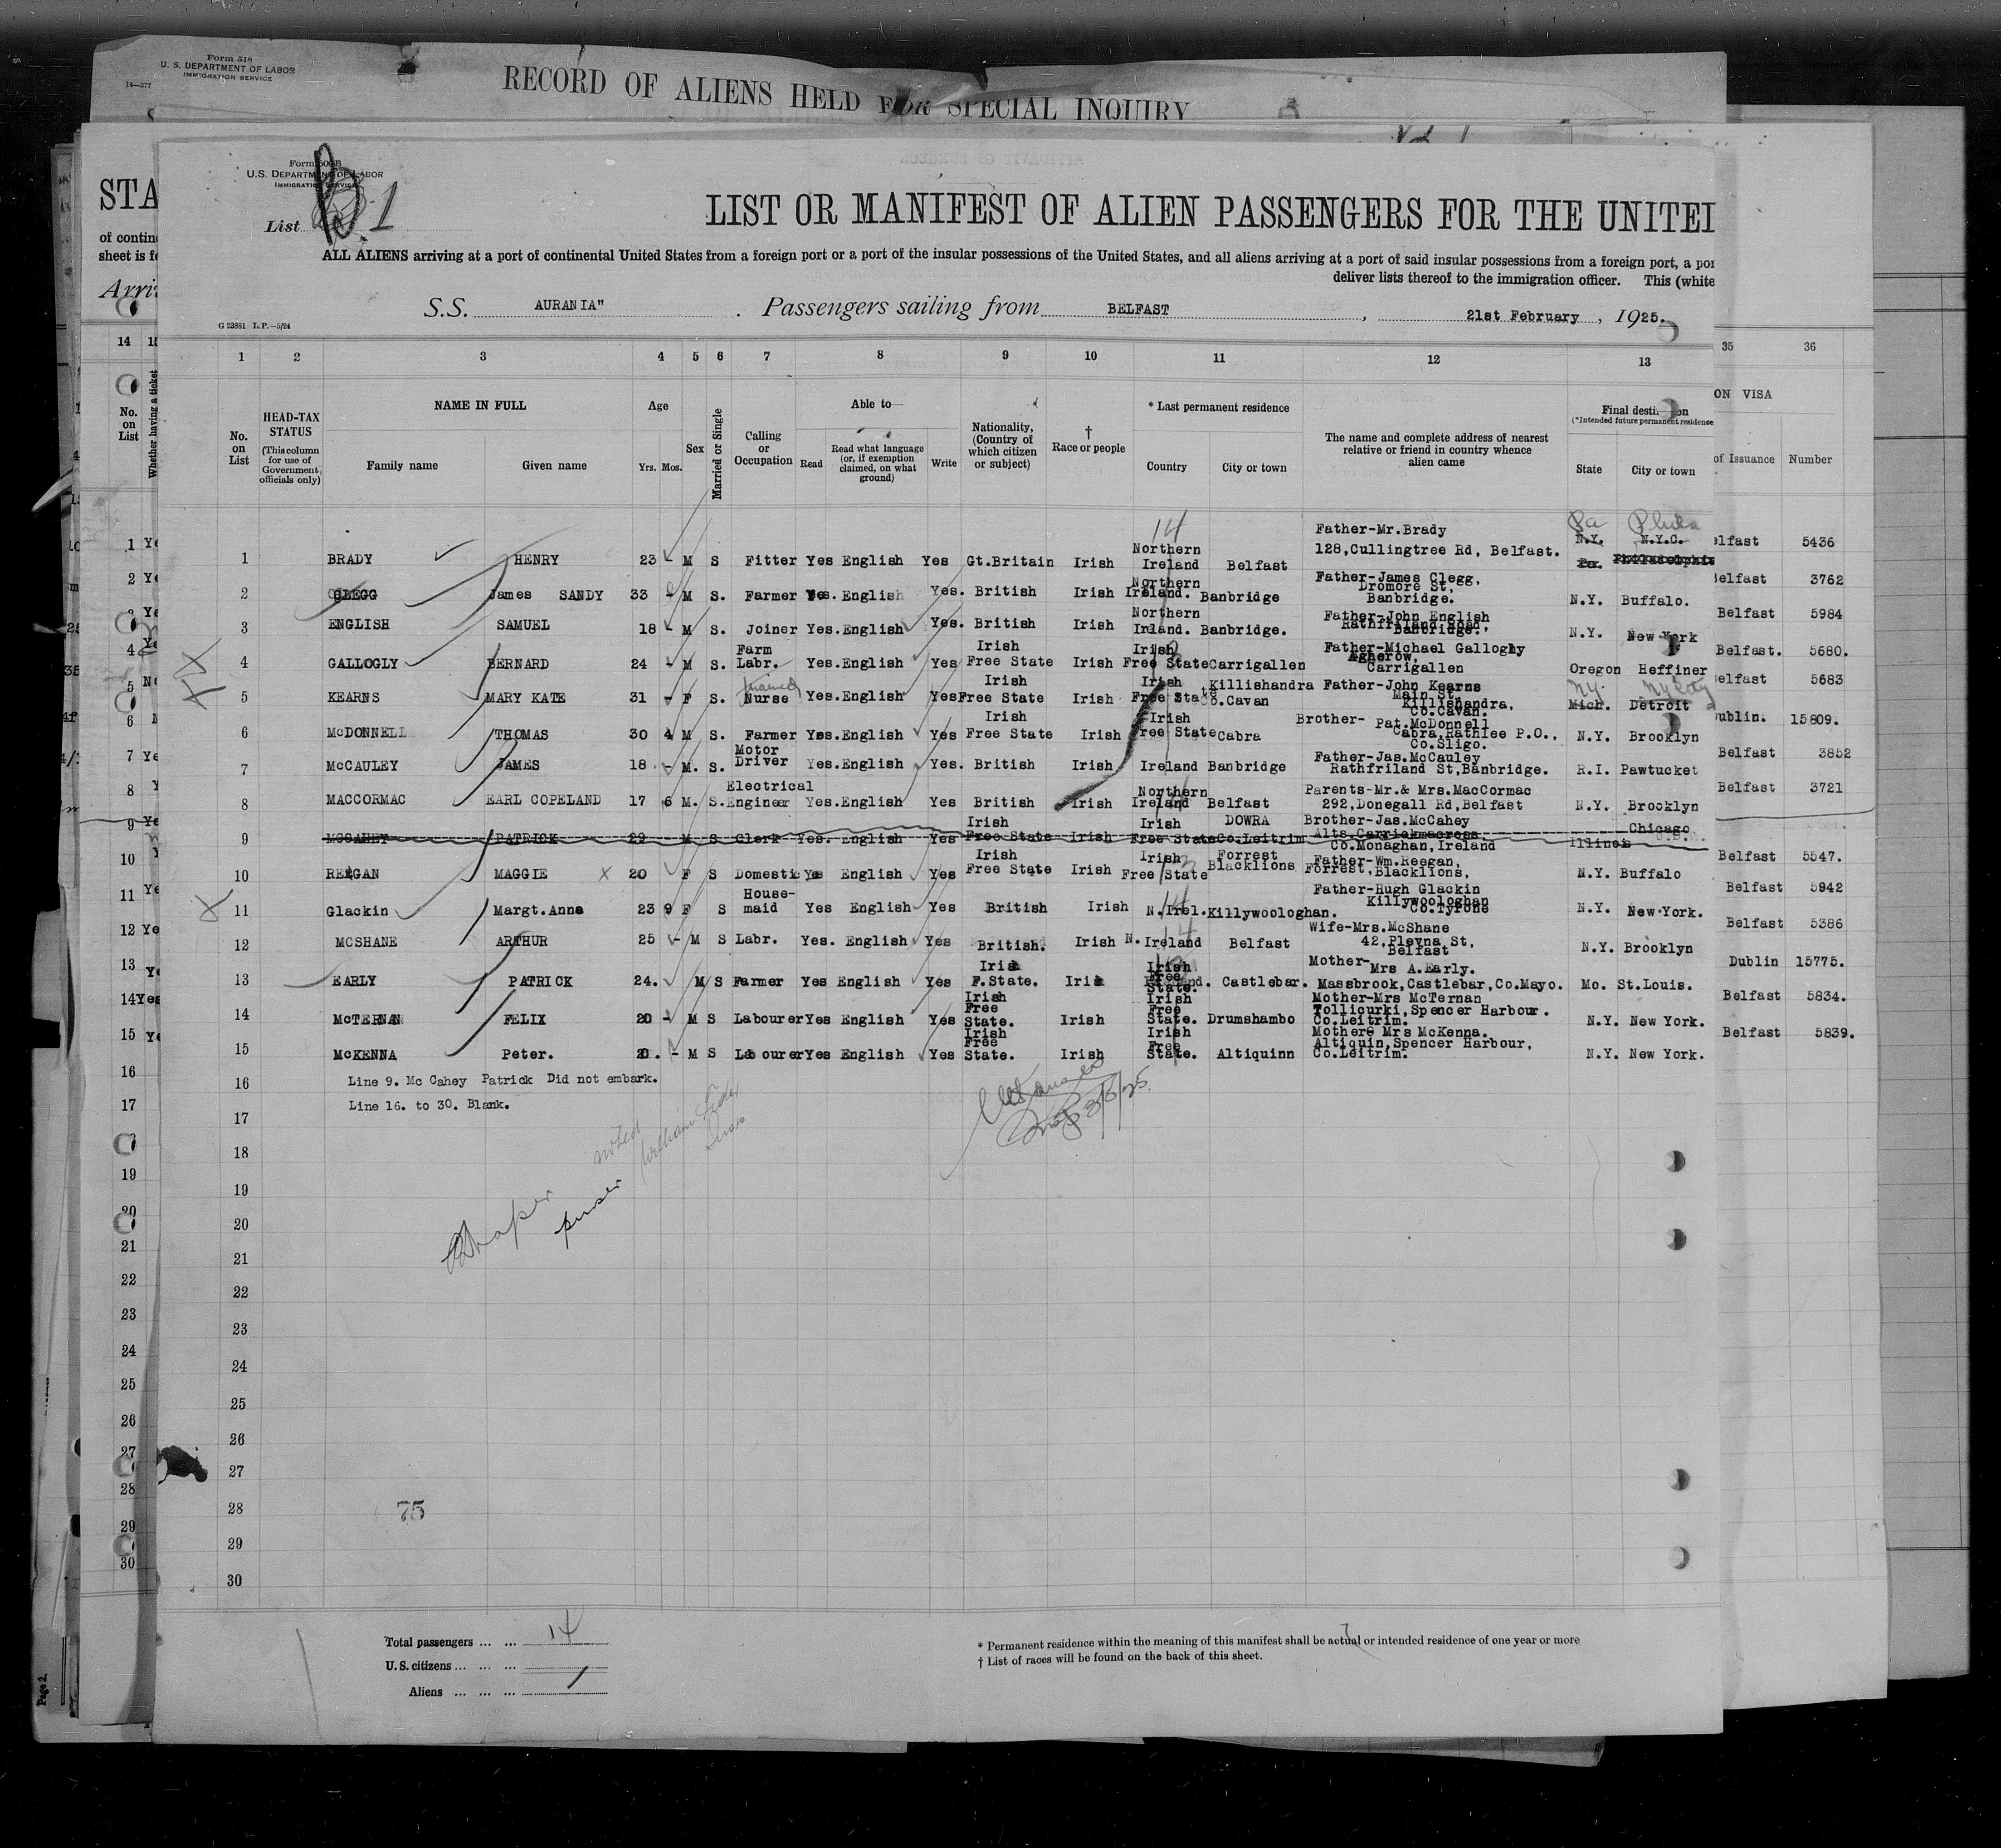 Form 518
U. S. DEPARTMENT OF LABOR
IMMIGRATION SERVICE
14—377
RECORD OF ALIENS HELD FOR SPECIAL INQUIRY
U.S. DEPARTMENT OF LABOR
IMMIGRATION SERVICE
List 1
STA
LIST OR MANIFEST OF ALIEN PASSENGERS FOR THE UNITE
of contin
sheet is f
ALL ALIENS arriving at a port of continental United States from a foreign port or a port of the insular possessions of the United States, and all aliens arriving at a port of said insular possessions from a foreign port, a por
deliver lists thereof to the immigration officer. This (white
Arri
S.S. AURANIA" . Passengers sailing from BELFAST , 21st February , 1925.
G 23881 L.P.—5/24
14 1 2 3 4 5 6 7 8 9 10 11 12 13 35 36
No. on List
Whether having a ticket
No. on List
HEAD-TAX STATUS
(This column for use of Government officials only)
NAME IN FULL
Family name Given name
Age
Yrs. Mos.
Sex
Married or Single
Calling or Occupation
Able to—
Read
Read what language (or, if exemption claimed, on what ground)
Write
Nationality, (Country of which citizen or subject)
† Race or people
* Last permanent residence
Country City or town
The name and complete address of nearest relative or friend in country whence alien came
Final destination
(*Intended future permanent residence
State City or town
ON VISA
of Issuance Number
14 Father-Mr.Brady Pa Phila
1 BRADY HENRY 23 M S Fitter Yes English Yes Gt.Britain Irish Northern Ireland Belfast 128,Cullingtree Rd, Belfast. N.Y. N.Y.C. Pa. Philadelphia elfast 5436
2 CLEGG James SANDY 33 - M S. Farmer Yes. English Yes. British Irish Northern Ireland. Banbridge Father-James Clegg, Dromore St, Banbridge. N.Y. Buffalo. Belfast 3762
3 ENGLISH SAMUEL 18 - M S. Joiner Yes.English Yes. British Irish Northern Ireland. Banbridge. Father-John English Rathfriland Road, Banbridge. N.Y. New York Belfast 5984
4 GALLOGLY BERNARD 24 - M S. Farm Labr. Yes.English Yes Irish Free State Irish Irish Free State Carrigallen Father-Michael Gallogly Agherow, Carrigallen Oregon Heffiner Belfast. 5680.
5 KEARNS MARY KATE 31 - F S. trained Nurse Yes.English Yes Irish Free State Irish Irish Free State Killishandra Co.Cavan Father-John Kearns Main St, Killishandra, Co.Cavan. NY. NY City Mich. Detroit elfast 5683
6 McDONNELL THOMAS 30 4 M S. Farmer Yes.English Yes Irish Free State Irish Irish Free State Cabra Brother- Pat.McDonnell Cabra,Rathlee P.O., Co.Sligo. N.Y. Brooklyn Dublin. 15809.
7 McCAULEY JAMES 18 - M. S. Motor Driver Yes.English Yes. British Irish Ireland Banbridge Father-Jas.McCauley Rathfriland St,Banbridge. R.I. Pawtucket Belfast 3852
8 MACCORMAC EARL COPELAND 17 6 M. S. Electrical Engineer Yes.English Yes British Irish Northern Ireland Belfast Parents-Mr.& Mrs.MacCormac 292,Donegall Rd,Belfast N.Y. Brooklyn Belfast 3721
9 MCCAHEY PATRICK 29 M S Clerk Yes. English Yes Irish Free State Irish Irish Free State DOWRA Co.Leitrim Brother-Jas.McCahey Alts Carrickmacross Co.Monaghan,Ireland Illinois Chicago
10 REEGAN MAGGIE x 20 F S Domestic Yes English Yes Irish Free State Irish Irish Free State Forrest Blacklions Father-Wm.Reegan, Forrest,Blacklyons, N.Y. Buffalo Belfast 5547.
11 Glackin Margt.Anna 23 9 F S House-maid Yes English Yes British Irish N.Irel. Killywoologhan. Father-Hugh Glackin Killywoologhan Co.Tyrone N.Y. New York. Belfast 5942
12 MCSHANE ARTHUR 25 - M S Labr. Yes. English Yes British. Irish N.Ireland Belfast Wife-Mrs.McShane 42,Plevna St, Belfast N.Y. Brooklyn Belfast 5386
13 EARLY PATRICK 24. M S Farmer Yes English Yes Irish F.State. Irish Irish Free State. Castlebar. Mother- Mrs A.Early. Massbrook,Castlebar,Co.Mayo. Mo. St.Louis. Dublin 15775.
14 McTERNAN FELIX 20 - M S Labourer Yes English Yes Irish Free State. Irish Irish Free State. Drumshambo Mother-Mrs McTernan Tollicurki,Spencer Harbour. Co.Leitrim. N.Y. New York. Belfast 5834.
15 McKENNA Peter. 20. - M S Labourer Yes English Yes Irish Free State. Irish Irish Free State. Altiquinn Mother Mrs McKenna. Altiquin,Spencer Harbour, Co.Leitrim. N.Y. New York. Belfast 5839.
16 Line 9. Mc Cahey Patrick Did not embark.
17 Line 16. to 30. Blank.
18
19
20
21
22
23
24
25
26
27
28
29
30
3/3/25
75
Total passengers ... ... 14
U.S. citizens ... ... ...
Aliens ... ... ...
* Permanent residence within the meaning of this manifest shall be actual or intended residence of one year or more
† List of races will be found on the back of this sheet.
Page 2.